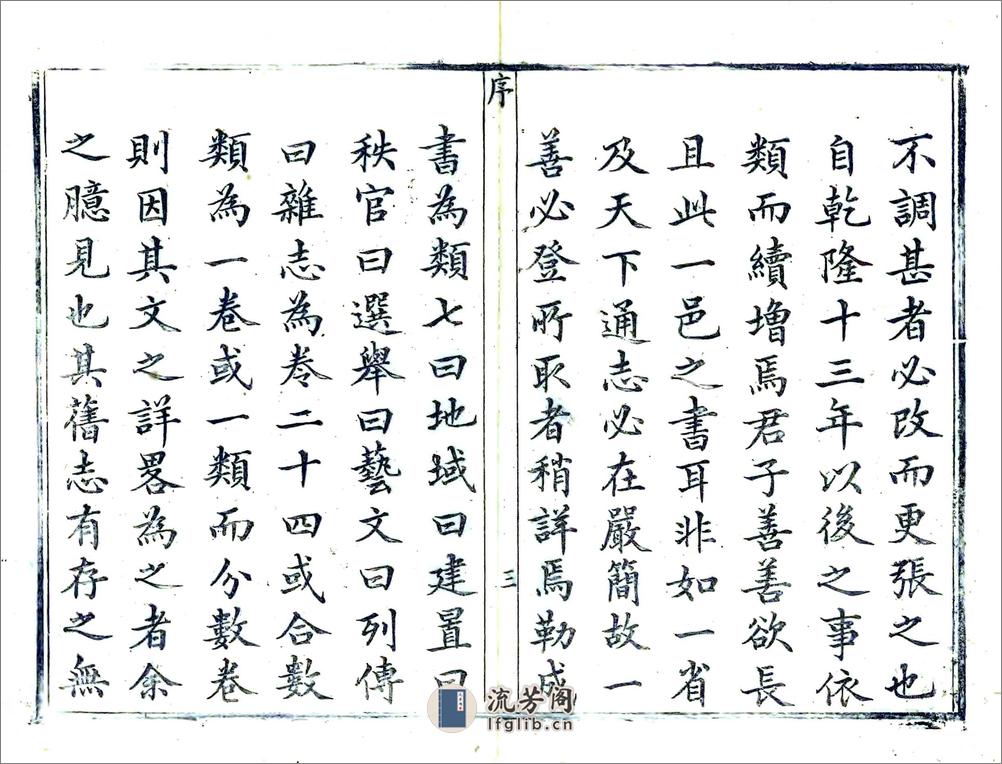 不調甚者必改而更張之也
自乾隆十三年以後之事依
類而續增焉君子善善欲長
且此一邑之書耳非如一省
及天下通志必在嚴簡故一
善必登所取者稍詳焉勒成
序
三
書為類七曰地域曰建置曰
秩官曰選舉曰藝文曰列傳
曰雜志為卷二十四或合數
類為一卷或一類而分數卷
則因其文之詳畧為之者余
之臆見也其舊志有存之無
流芳阁
lfglib.cn